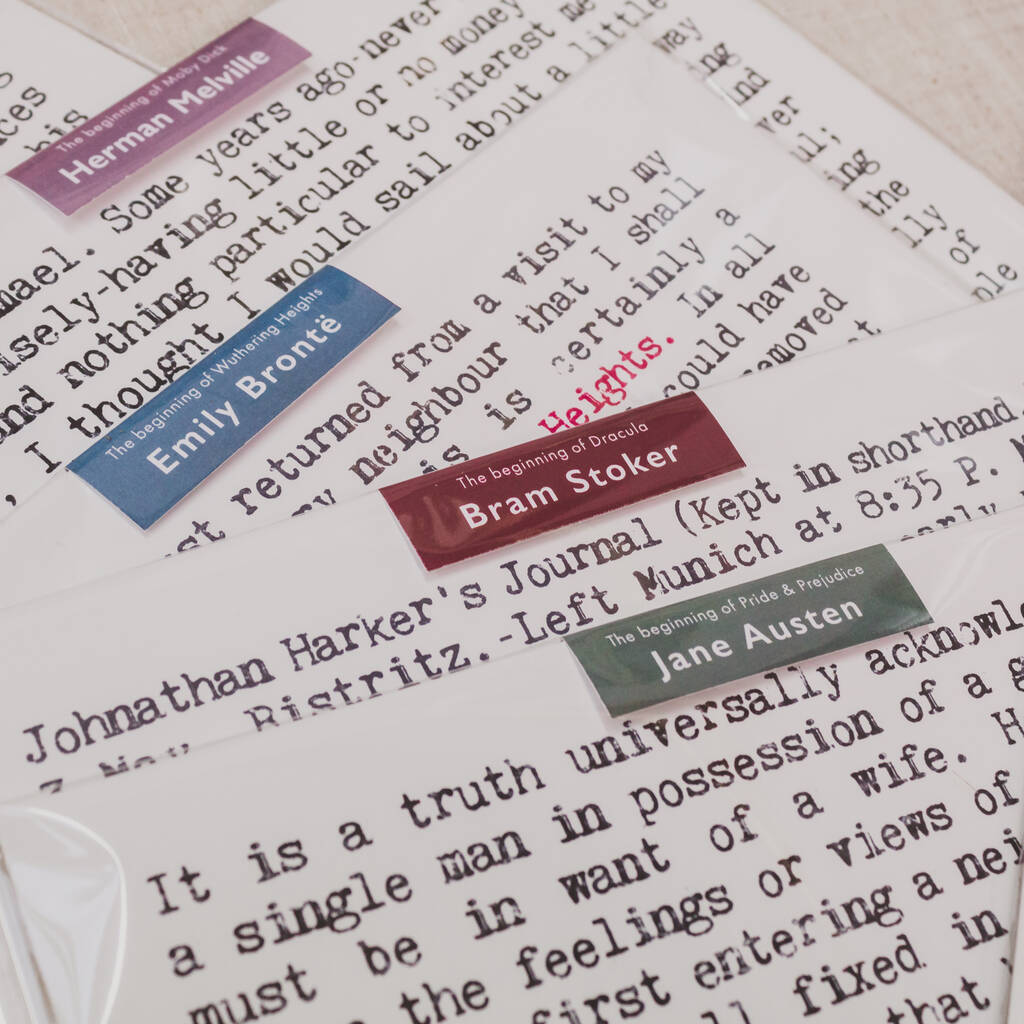 The beginning of Moby Dick
Herman Melville
Some years ago-never
having little or no money
and nothing particular to interest me
I thought I would sail about a little
The beginning of Wuthering Heights
Emily Brontë
returned from a visit to my
neighbour that I shall
is certainly a
Heights. In all
could have
removed
way
the
of
The beginning of Dracula
Bram Stoker
Johnathan Harker's Journal (Kept in shorthand.
Bistritz. -Left Munich at 8:35 P. M
The beginning of Pride & Prejudice
Jane Austen
It is a truth universally acknowle
a single man in possession of a g
must be in want of a wife. H
the feelings or views of
first entering a nei
fixed in
that